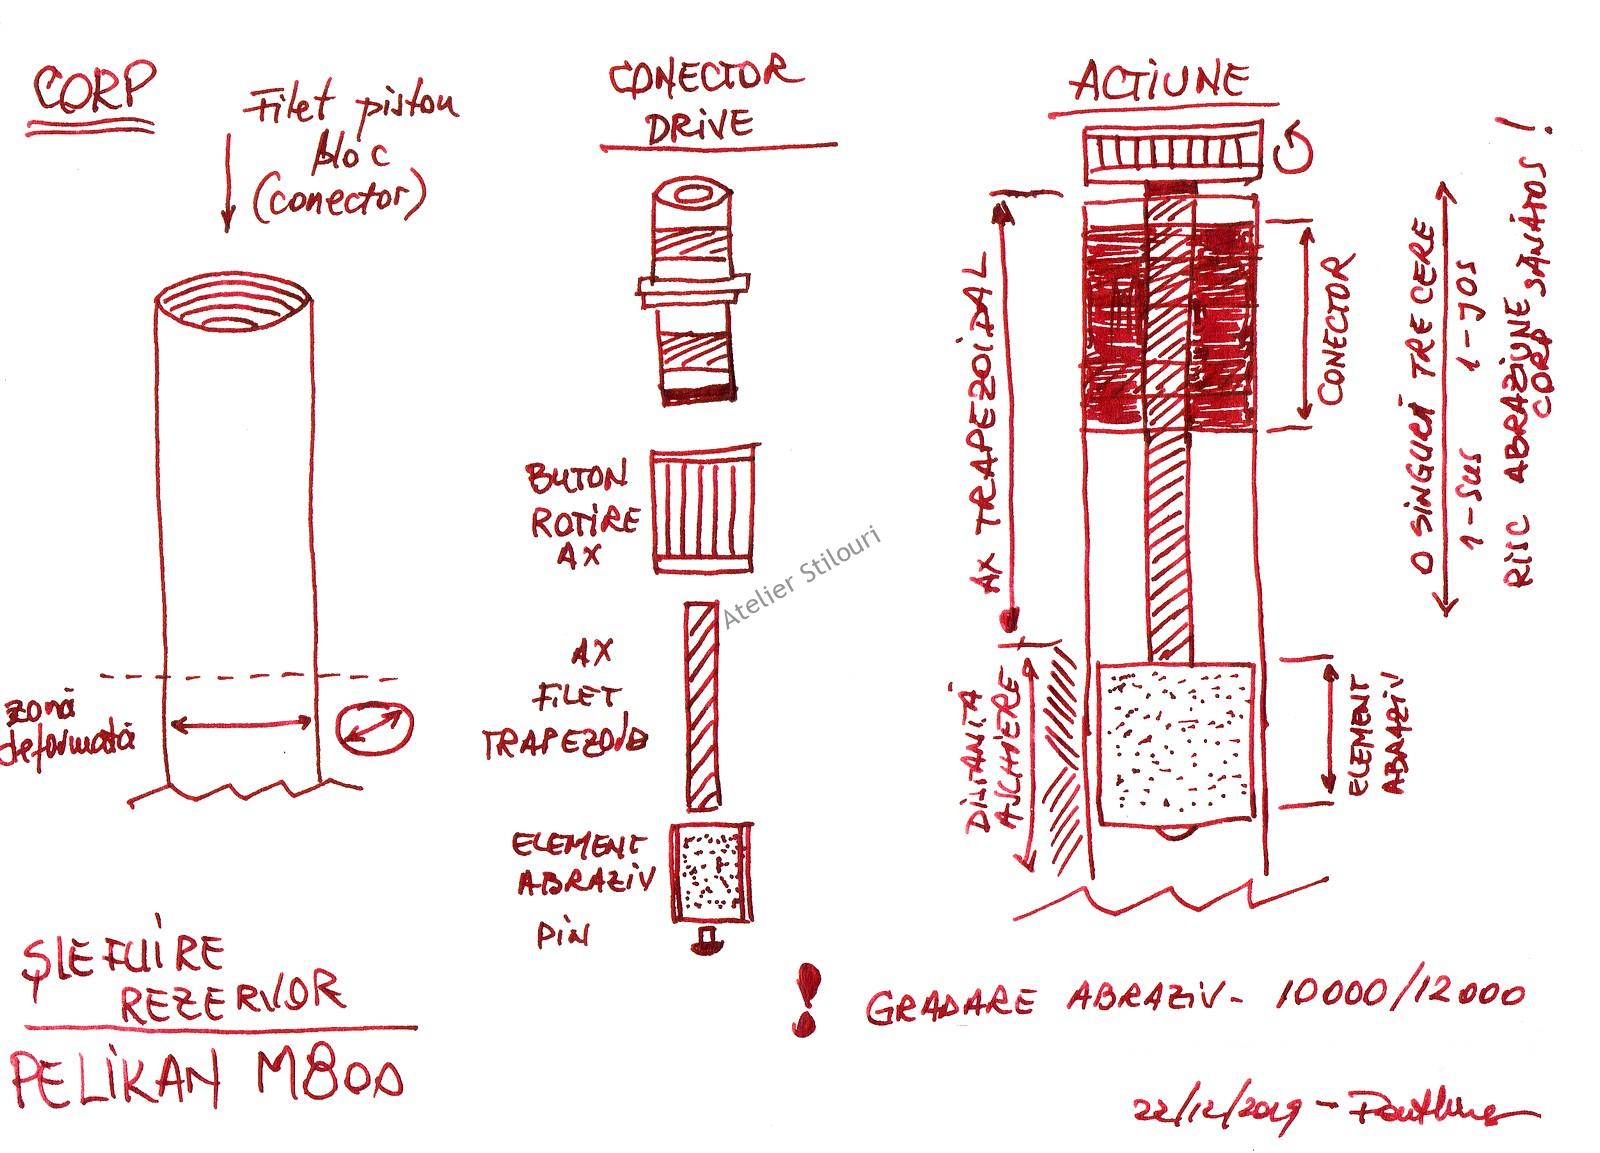 CORP
Filet piston
bloc
(conector)
zonă
deformată
ȘLEFUIRE
REZERVOR
PELIKAN M800
CONECTOR
DRIVE
BUTON
ROTIRE
AX
AX
FILET
TRAPEZOID
ELEMENT
ABRAZIV
PIN
Atelier Stilouri
ACTIUNE
AX TRAPEZOIDAL
CONECTOR
DISTANȚĂ
AȘCHIERE
ELEMENT
ABRAZIV
O SINGURĂ TRECERE
1-SUS 1-JOS
RISC ABRAZIUNE
CORP SĂNĂTOS !
! GRADARE ABRAZIV - 10000/12000
22/12/2019 -